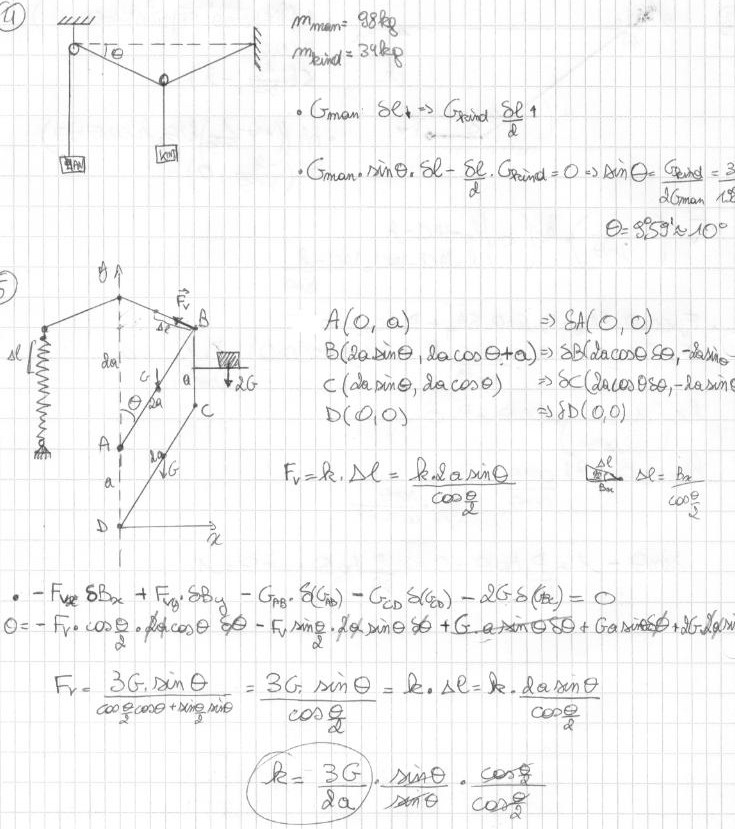 4
m_man = 98kg
m_kind = 34kg
θ
MAN
KIND
• G_man δl↓ => G_kind δl/2 ↑
• G_man · sinθ · δl - δl/2 · G_kind = 0 => sinθ = G_kind/2G_man = 3
θ = 9°59' ≈ 10°
5
y
F_v
Δl
B
Δl
2a
G
a
2G
θ
2a
C
A
2a
G
a
D
x
A(0, a) => δA(0,0)
B(2a sinθ, 2a cosθ+a) => δB(2a cosθ δθ, -2a sinθ
C(2a sinθ, 2a cosθ) => δC(2a cosθ δθ, -2a sinθ
D(0,0) => δD(0,0)
F_v = k · Δl = k·2a sinθ / cos θ/2
Δl
B_x
Δl = B_x / cos θ/2
• -F_vx δB_x + F_vy · δB_y - G_AB · δ(G_AB) - G_CD δ(G_CD) - 2G δ(G_BC) = 0
0 = -F_v · cos θ/2 · 2a cosθ δθ - F_v sin θ/2 · 2a sinθ δθ + G · a sinθ δθ + G a sinθ δθ + 2G · 2a sin
F_v = 3G · sinθ / cos θ/2 cosθ + sin θ/2 sinθ = 3G · sinθ / cos θ/2 = k · Δl = k · 2a sinθ / cos θ/2
k = 3G/2a · sinθ/sinθ · cos θ/2 / cos θ/2